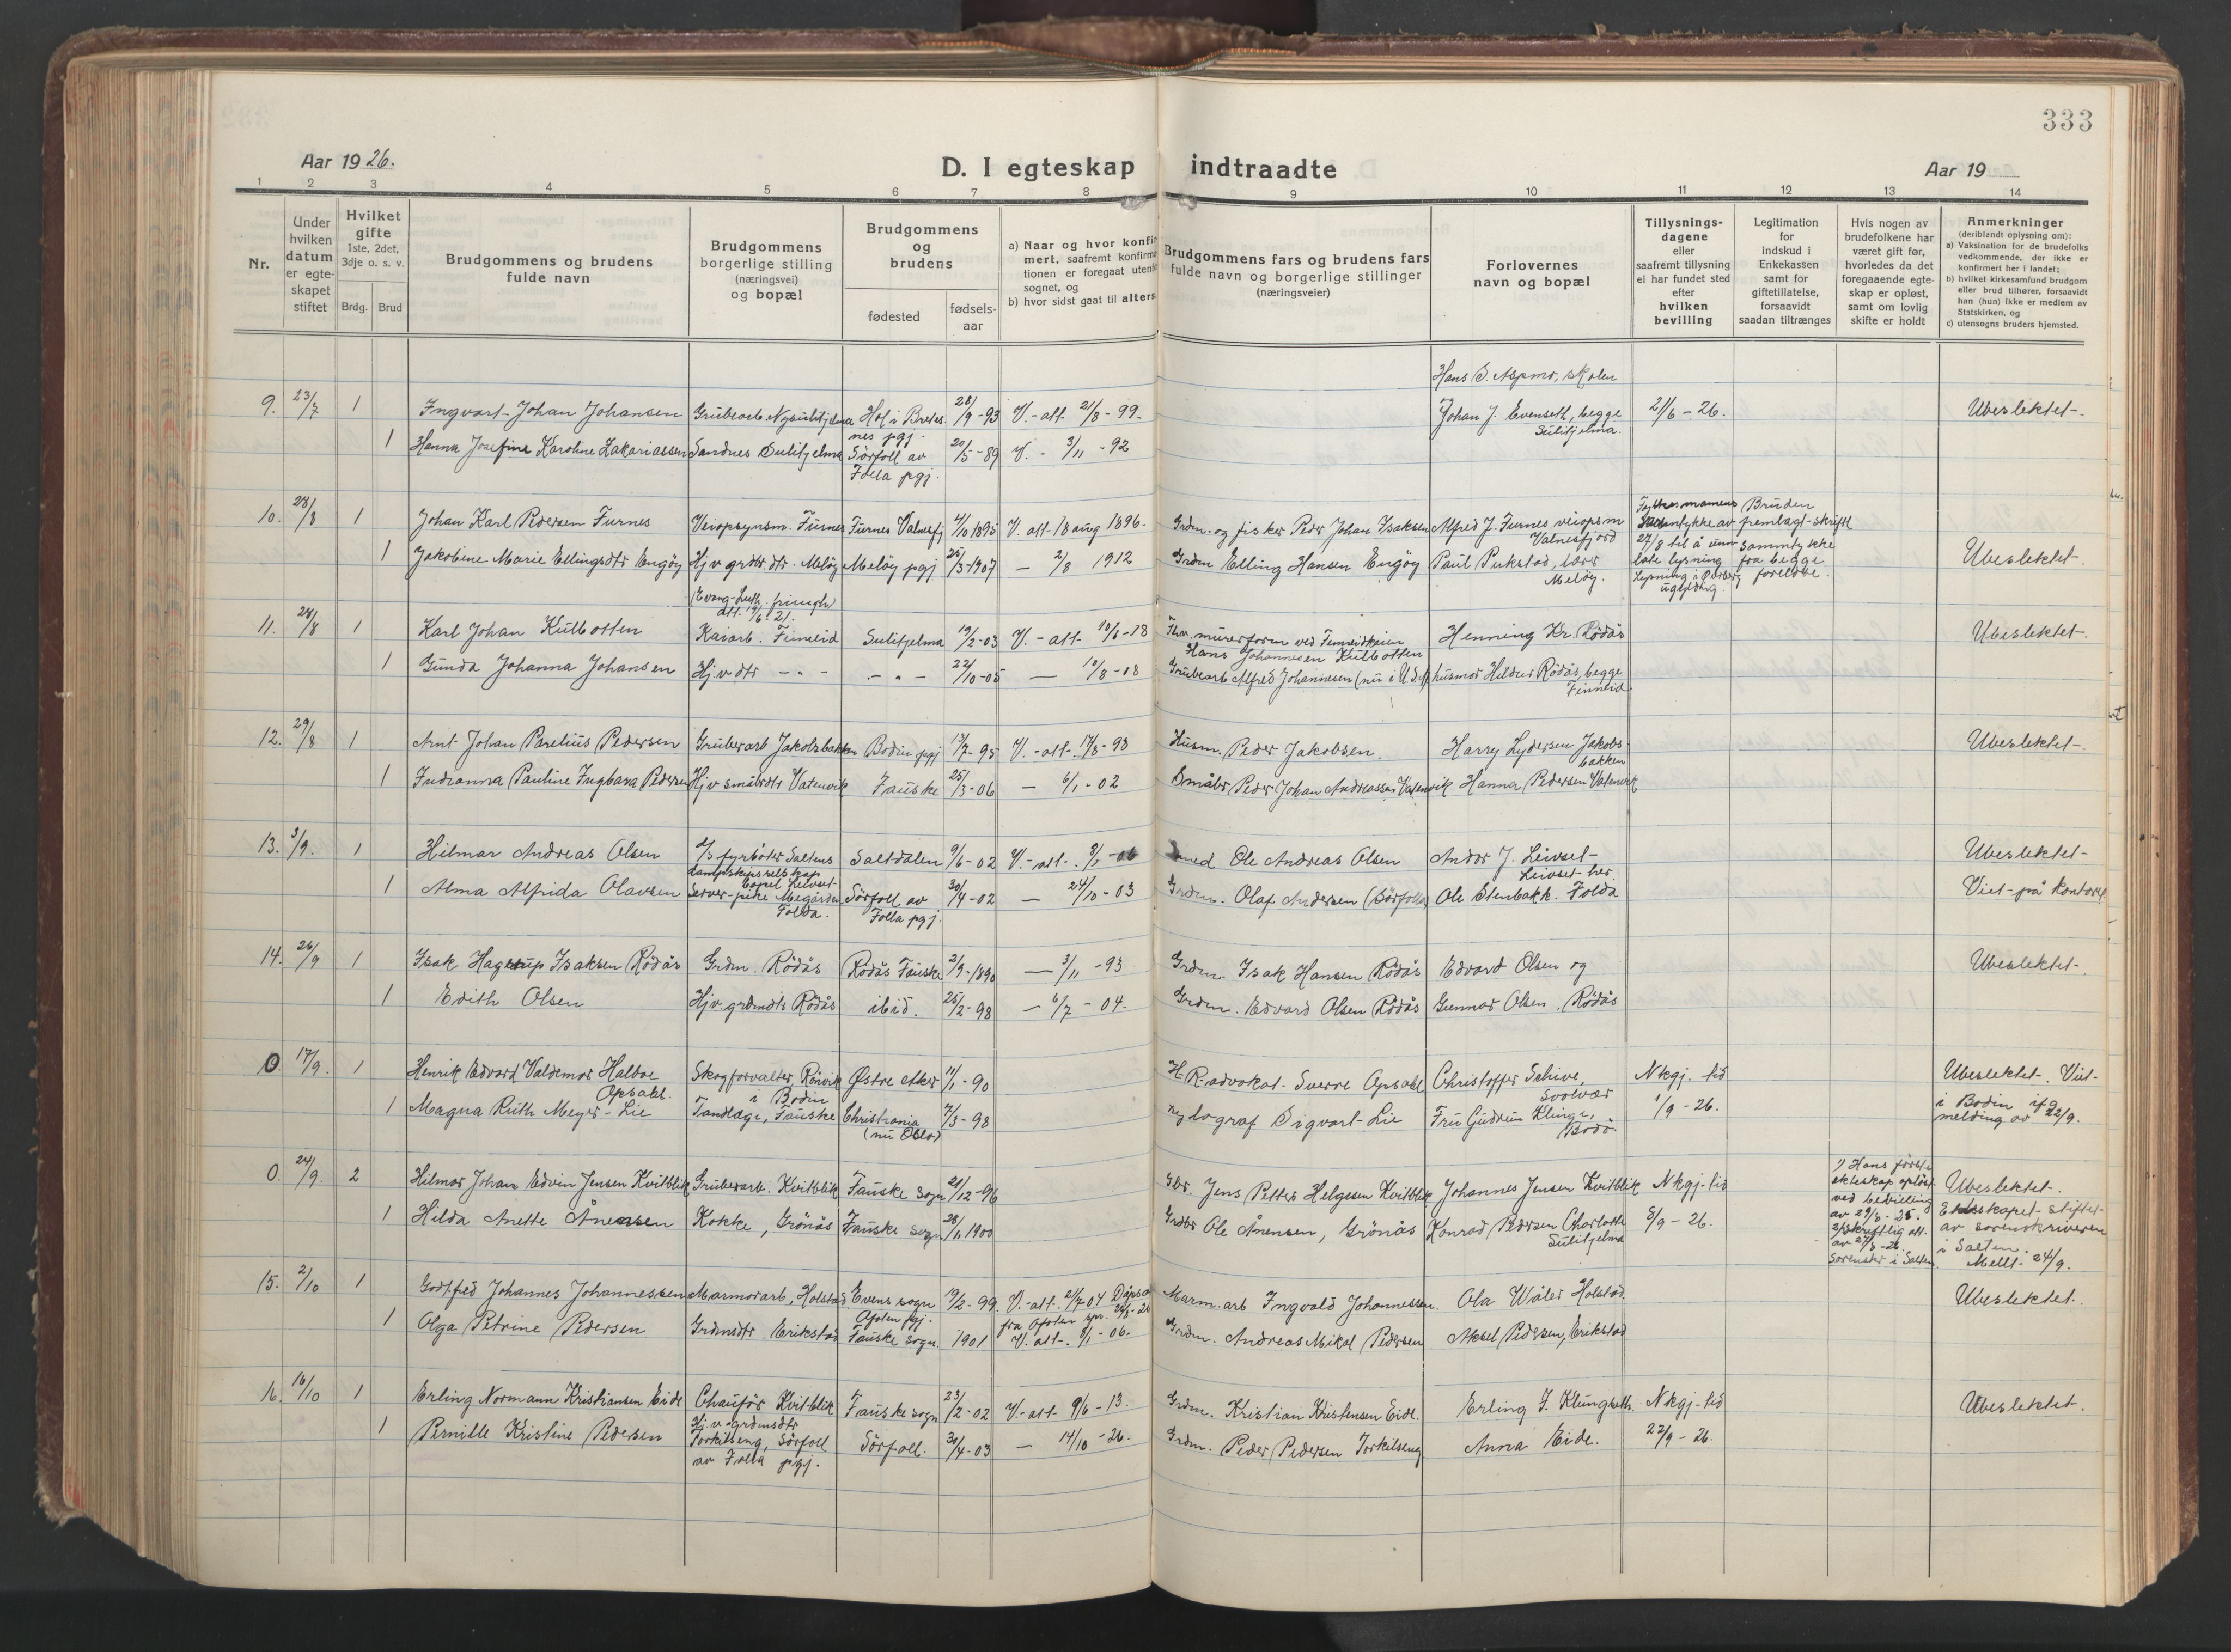 333
Aar 1926.
D. I egteskap indtraadte
Aar 19
1 2 3 4 5 6 7 8 9 10 11 12 13 14
Nr.
Under hvilken datum er egteskapet stiftet
Hvilket gifte 1ste, 2det, 3dje o. s. v.
Brdg. Brud
Brudgommens og brudens fulde navn
Brudgommens borgerlige stilling (næringsvei) og bopæl
Brudgommens og brudens
fødested
fødselsaar
a) Naar og hvor konfirmert, saafremt konfirmationen er foregaat utenfor sognet, og
b) hvor sidst gaat til alters
Brudgommens fars og brudens fars fulde navn og borgerlige stillinger (næringsveier)
Forlovernes navn og bopæl
Tillysningsdagene eller saafremt tillysning ei har fundet sted efter hvilken bevilling
Legitimation for indskud i Enkekassen samt for giftetillatelse, forsaavidt saadan tiltrænges
Hvis nogen av brudefolkene har været gift før, hvorledes da det foregaaende egteskap er opløst, samt om lovlig skifte er holdt
Anmerkninger (deriblandt oplysning om):
a) Vaksination for de brudefolks vedkommende, der ikke er konfirmert her i landet;
b) hvilket kirkesamfund brudgom eller brud tilhører, forsaavidt han (hun) ikke er medlem av Statskirken, og
c) utensogns bruders hjemsted.
9. 23/7 1 Ingvart Johan Johansen Grubearb Ny Sulitjelma Hol i Bretesnes pgj. 28/9-93 V.-att. 21/8-99. Hans S. Aspmo, skolen Johan J. Evenseth, begge Sulitjelma. 21/6-26. Ubeslektet.
1 Hanna Josefine Karoline Zakariassen Sandnes Sulitjelma Sörfoll av Folla pgj. 20/5-89 V. - 3/11-92
10. 28/8 1 Johan Karl Pedersen Furnes Veiopsynsm. Furnes Furnes Valnesfj 4/10 1895 V. att 18 aug 1896. Grdm. og fisker Peder Johan Isaksen Alfred J. Furnes veiopsm Valnesfjord
1 Jakobine Marie Ellingsdtr Engöy Hjv grdbr dtr. Melöy Melöy pgj 25/3-1907 — 2/8 1912 Grdm Elling Hansen Engöy Paul Pukstad, lærer Melöy. Ubeslektet.
Fylkesmannens Samtykke av 27/8 til å unnlate lysning
Bruden fremlagt skriftl sammtykke fra begge foreldre.
11. 28/8 1 Karl Johan Kulbotten (Evang-Luth. frimgh) att. 19/6. 21. Kaiarb. Finneid Sulitjelma 19/2-03 V.-att 10/6-18 Hans Johannesen Kulbotten Henning Kr. Rödås Ubeslektet.
1 Gunda Johanna Johansen Hjv dtr - " - - " - 22/10-05 — 10/8-08 Grubearb Alfred Johannesen (nu i U.S.A) husmor Hildur Rödås, begge Finneid
12. 29/8 1 Arnt Johan Parelius Pedersen Grubearb Jakobsbakken Bodin pgj 13/7-95 V.-att. 17/8-98 Husm. Peder Jakobsen. Harry Lydersen Jakobsbakken Ubeslektet.
1 Indianna Pauline Ingbara Pedersen Hjv småbrdtr Vatenvik Fauske 25/3-06 — 6/1-02 Småbr Peder Johan Andreassen Vatenvik Hanna Pedersen Vatenvik
13. 3/9. 1 Hilmar Andreas Olsen D/S fyrböter Saltens Dampskipsselskap bopel Leivset Saltdalen 9/6-02 V.-att. 3/1-06 Ole Andreas Olsen Andor J. Leivset Leivset her. Ubeslektet
1 Alma Alfrida Olavsen Server-pike Megården Folda. Sörfoll av Folla pgj. 30/4-02 — 24/10-03 Grdm. Olaf Andersen (Sörfolla) Ole Stenbakk. Folda Viet på kontoret
14. 26/9 1 Isak Hagerup Isaksen Rödås Grdm. Rödås Rödås Fauske 2/9-1890 — 3/11-93 Grdm. Isak Hansen Rödås Edvard Olsen og Ubeslektet.
1 Edith Olsen Hjv. grdmdtr Rödås ibid. 25/2-98 — 6/7-04. Grdm. Edvard Olsen Rödås Gunnar Olsen, Rödås
0. 17/9. 1 Henrik Edvard Valdemar Halboe Opsahl. Skogforvalter, Rönvik i Bodin Østre Aker 11/1-90 H.R.advokat. Sverre Opsahl Christoffer Schive, Svolvær Nkgj. tid 1/9-26. Ubeslektet. Viet i Bodin ifg melding av 22/9.
1 Magna Ruth Meyer-Lie Tandlæge, Fauske Christiania (nu Oslo) 7/3-98 Xylograf Sigvart Lie Fru Gudrun Klinge, Bodö.
0. 24/9. 2 Hilmar Johan Edvin Jensen Kvitblik Grubearb. Kvitblik Fauske sogn 21/12-96 Gbr. Jens Petter Helgesen Kvitblik Johannes Jensen Kvitblik Nkgj-tid 8/9-26.
1) Hans förste ekteskap oplöst ved bevilling av 29/8-25. 2) skriftlig att. av 27/8-26. Sorenskr i Salten.
Ubeslektet. Ekteskapet stiftet av sorenskriveren i Salten. Meldt. 24/9.
1 Hilda Anette Ånensen Kokke, Grönås Fauske sogn 28/11 1900 Grdbr Ole Ånensen, Grönås Konrad Pedersen Charlotte Sulitjelma
15. 2/10 1 Godtfred Johannes Johannessen Marmorarb, Holstad Evenes sogn Ofoten pgj. 19/2-99. V.-att. 2/7-04 Dåpsatt fra Ofoten spr. Marm.arb Ingvald Johannessen. Ola Wåler Holstad. Ubeslektet.
1 Olga Petrine Pedersen Grdmsdtr Erikstad Fauske sogn. 1901 V. att. 3/1-06. Grdm. Andreas Mikal Pedersen Aksel Pedersen, Erikstad
16. 16/10 1 Erling Normann Kristiansen Eide Chauför Kvitblik Fauske sogn 23/2-02 V.-att 9/6-13. Grdm. Kristian Kristensen Eide. Erling J. Klungseth. Nkgj-tid 22/9-26. Ubeslektet.
1 Pernille Kristine Pedersen Hj.v. grdmsdtr Torkilseng, Sörfoll av Folla pgj. Sörfoll. 30/4-03 — 14/10-26. Grdm. Peder Pedersen Torkilseng Anna Eide.